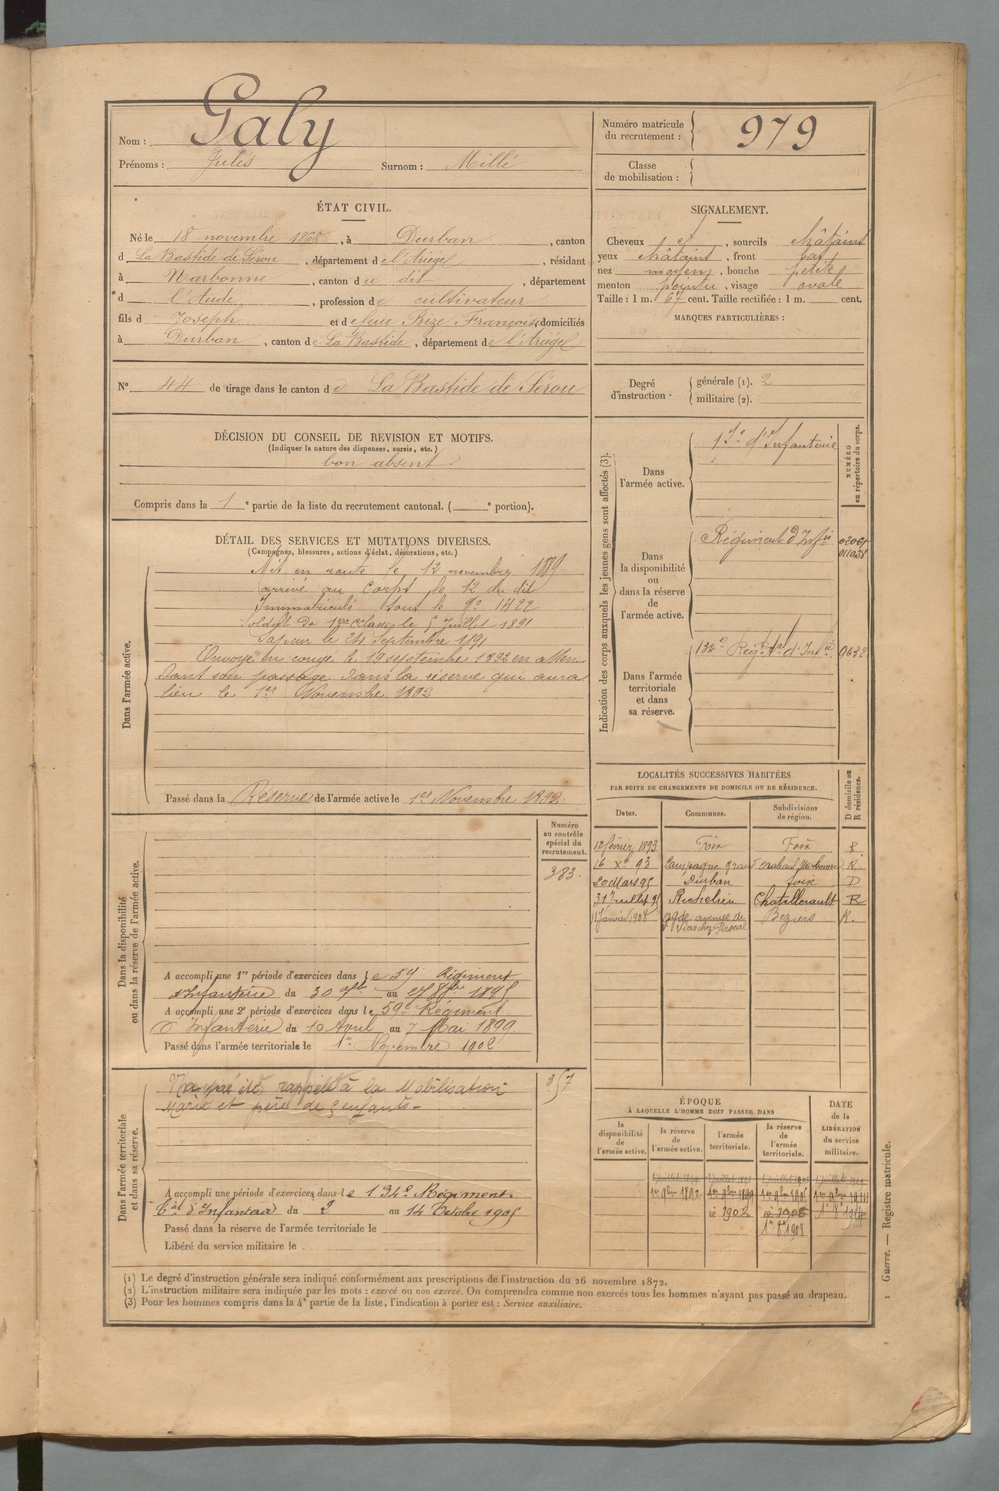 Nom : Galy
Prénoms : Jules Surnom : Millé
Numéro matricule du recrutement : 979
Classe de mobilisation :
ÉTAT CIVIL.
Né le 18 novembre 1868, à Durban, canton
d La Bastide de Sérou, département de l'Ariège, résidant
à Narbonne, canton du dit, département
d l'Aude, profession de cultivateur
fils d Joseph et de feue Bize Françoise, domiciliés
à Durban, canton de La Bastide, département de l'Ariège
N° 44 de tirage dans le canton de La Bastide de Sérou
SIGNALEMENT.
Cheveux et, sourcils châtains
yeux châtains, front bas
nez moyen, bouche petite
menton pointu, visage ovale
Taille : 1 m. 67 cent. Taille rectifiée : 1 m. cent.
MARQUES PARTICULIÈRES :
Degré d'instruction. générale (1). 2
militaire (2).
DÉCISION DU CONSEIL DE REVISION ET MOTIFS.
(Indiquer la nature des dispenses, sursis, etc.)
bon absent
Compris dans la 1e partie de la liste du recrutement cantonal. ( e portion).
DÉTAIL DES SERVICES ET MUTATIONS DIVERSES.
(Campagnes, blessures, actions d'éclat, décorations, etc.)
Dans l'armée active.
Mis en route le 12 novembre 1889
arrivé au Corps le 12 du dit
Immatriculé sous le N°
Soldat de 1re classe le 5 Juillet 1891
Sapeur le 24 Septembre 1891
Envoyé en congé le 19 septembre 1892 en atten
dant son passage dans la réserve qui aura
lieu le 1er Novembre 1892
Passé dans la Réserve de l'armée active le 1er Novembre 1892.
Indication des corps auxquels les jeunes gens sont affectés (3).
NUMÉRO au répertoire du corps.
Dans l'armée active.
d'Infanterie
Dans la disponibilité ou dans la réserve de l'armée active.
Régiment d'Infie
Dans l'armée territoriale et dans sa réserve.
Régt d'Infie
LOCALITÉS SUCCESSIVES HABITÉES
PAR SUITE DE CHANGEMENTS DE DOMICILE OU DE RÉSIDENCE.
Dates. Communes. Subdivisions de région. D domicile ou R résidence.
12 février 1893 Foix Foix R.
16 Xbre 93 Narbonne R.
20 Mars 95 Durban Foix D
31 Juillet 95 Richelieu Chatellerault R
Janvier 1908 avenue de Béziers R.
Dans la disponibilité ou dans la réserve de l'armée active.
Numéro au contrôle spécial du recrutement.
383.
A accompli une 1re période d'exercices dans le 59 Régiment
d'Infanterie du 30 au 1895
A accompli une 2e période d'exercices dans le 59e Régiment
d'Infanterie du 10 Avril au 7 Mai 1899
Passé dans l'armée territoriale le 1er Novembre 1902
Dans l'armée territoriale et dans sa réserve.
N'a pas été rappelé à la Mobilisation
Marié et père de 5 enfants -
A accompli une période d'exercices dans le Régiment
d'Infanterie du 2 au 14 Octobre 1905
Passé dans la réserve de l'armée territoriale le
Libéré du service militaire le
ÉPOQUE
À LAQUELLE L'HOMME DOIT PASSER DANS
la disponibilité de l'armée active. la réserve de l'armée active. l'armée territoriale. la réserve de l'armée territoriale.
DATE de la LIBÉRATION du service militaire.
1er 9bre 1892 1er 9bre 1899
1902
(1) Le degré d'instruction générale sera indiqué conformément aux prescriptions de l'instruction du 26 novembre 1872.
(2) L'instruction militaire sera indiquée par les mots : exercé ou non exercé. On comprendra comme non exercés tous les hommes n'ayant pas passé au drapeau.
(3) Pour les hommes compris dans la 4e partie de la liste, l'indication à porter est : Service auxiliaire.
Guerre. — Registre matricule.